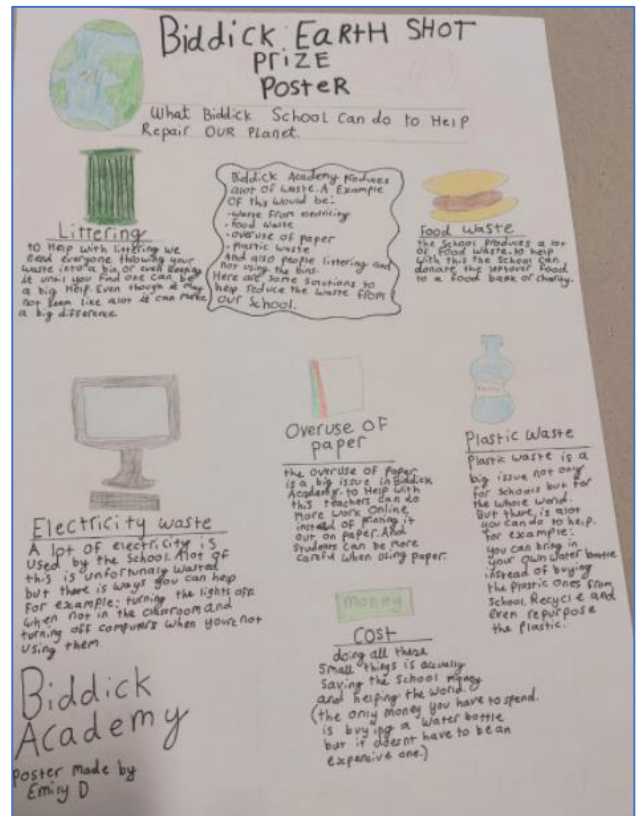 Biddick EaRtH SHOT
PRiZE
POSteR
What Biddick School Can do to Help
Repair OUR Planet.
Littering
to Help with littering we
need everyone throwing your
waste into a bin or even keeping
it until you find one can be
a big Help. Even though it may
not seem like alot it can make
a big difference
Biddick Academy Produces
alot of waste. A Example
Of this would be:
-waste from electricity
-food waste
-overuse of paper
-plastic waste
and also people littering and
not using the bins.
Here are some solutions to
help reduce the waste from
our School.
Food waste
the School Produces a lot
of food waste. to help
with this the School can
donate the leftover food
to a food bank or charity.
Electricity waste
A lot of electricity is
used by the School. Alot of
this is unfortunaly wasted
but there is ways you can help
for example: turning the lights off
when not in the classroom and
turning off computers when youre not
using them
Overuse OF
paper
the overuse of Paper
is a big issue in Biddick
Academy. to Help with
this teachers can do
more work Online
instead of Prining it
out on paper. And
Students can be more
careful when using paper.
Plastic waste
Plastic waste is a
big issue not only
for Schools but for
the whole world.
But there, is alot
you can do to help.
for example:
you can bring in
your own water bottle
instead of buying
the plastic ones from
School. Recycle and
even repurpose
the Plastic.
money
Cost
doing all these
Small things is actually
Saving the School money
and helping the world.
(the only money you have to spend.
is buying a water bottle
but it doesnt have to be an
expensive one.)
Biddick
Academy
Poster made by
Emily D